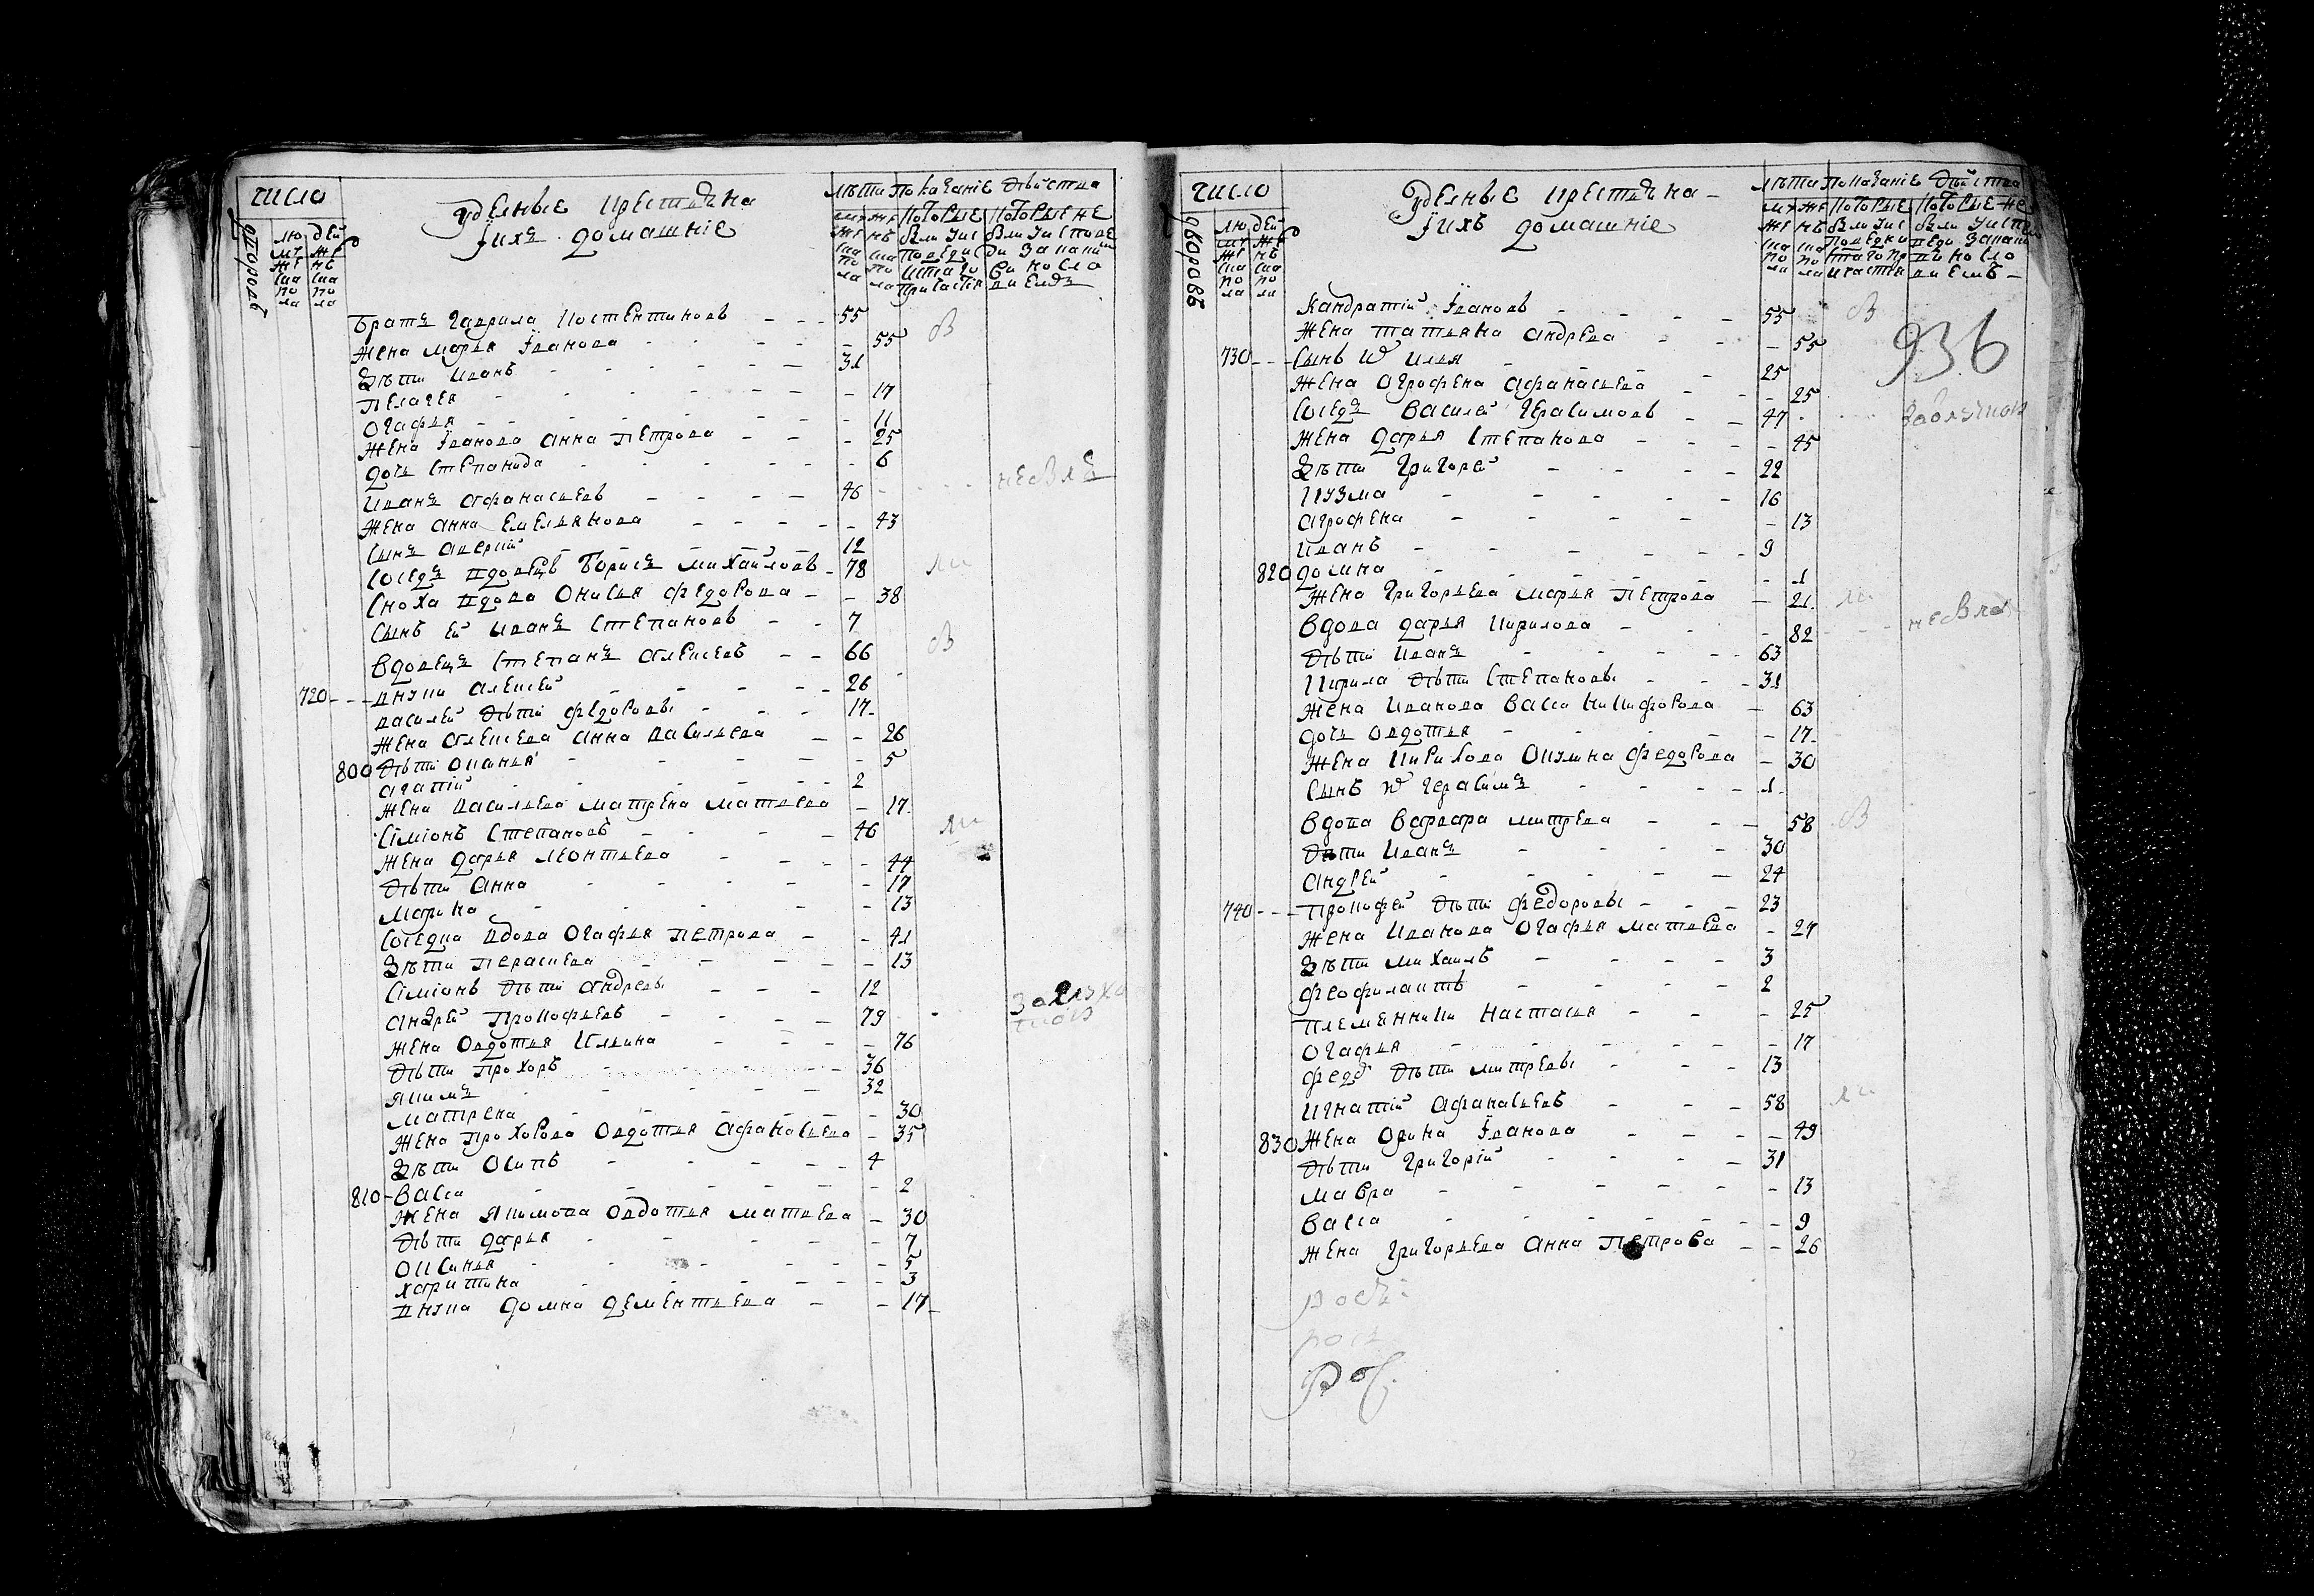 число
удельные крестьяна
їихъ домашніе
лѣта показаніе дѣйства
дворовъ
людей
мужеска пола
женска пола
которые были у исповеди и святаго причастія
которые не были у исповеди за каким виностію
братъ гаврила костентиновъ - - - 55
жена марья їванова - - - 55
дѣти иванъ - - - 31
пелагея - - - 17
огафья - - - 11
жена їванова анна петрова - - - 25
дочь степанида - - - 6
иванъ афанасьевъ - - - 46 небылъ
жена анна емельянова - - - 43
сынъ аверкий - - - 12
соседъ вдовецъ борисъ михайловъ - 78
сноха вдова онисья федорова - - 38
сынъ ей иванъ степановъ - - 7
вдовецъ степанъ алексеевъ - - 66
720 - - - внуки алексей - - - 26
василей дѣти федоровы - - - 17
жена алексева анна васильева - - 26
800 дѣти оксинья - - - 5
агапій - - - 2
жена васильева матрена матвева - 17
сіміонъ степановъ - - - 46
жена дарья леонтьева - - - 44
дѣти анна - - - 17
марина - - - 13
соседка вдова огафья петрова - - 41
дѣти пераскева - - - 13
сіміонъ дѣти андреевы - - - 12
андрей прокофьевъ - - - 79
жена овдотья ильина - - - 76
дѣти прохоръ - - - 36
якимъ - - - 32
матрена - - - 30
жена прохорова овдотья афанасьева - 35
дѣти осипъ - - - 4
810 - васса - - - 2
жена якимова овдотья матвева - 30
дѣти дарья - - - 7
оксинья - - - 5
харитина - - - 3
внука домна дементьева - - 17
число
удельные крестьяна -
їихъ домашніе
лѣта показаніе дѣйства
дворовъ
людей
мужеска пола
женска пола
936
кандратій ївановъ - - - 55
жена татьяна андрева - - - 55
730 - - - сынъ илья - - - 25
жена аграфена афанасьева - - - 25
соседъ василей герасимовъ - - 47
жена дарья степанова - - - 45
дѣти григорей - - - 22
кузма - - - 16
аграфена - - - 13
иванъ - - - 9
820 домна - - - 1
жена григорьева марья петрова - 21
вдова дарья кирилова - - - 82
дѣти иванъ - - - 63
кирила дѣти степановы - - - 31
жена иванова васса никифорова - 63
дочь овдотья - - - 17
жена кирилова окулина федорова - 30
сынъ герасимъ - - - 1
вдова варвара митрева - - - 58
дѣти иванъ - - - 30
андрей - - - 24
740 - - - прокофей дѣти федоровы - - - 23
жена иванова огафья матвева - 27
дѣти михаилъ - - - 3
феофилактъ - - - 2
племянники настасья - - - 25
огафья - - - 17
федоръ дѣти митревы - - - 13
игнатій афанасьевъ - - - 58
830 жена орина їванова - - - 49
дѣти григорій - - - 31
мавра - - - 13
васса - - - 9
жена григорьева анна петрова - - 26